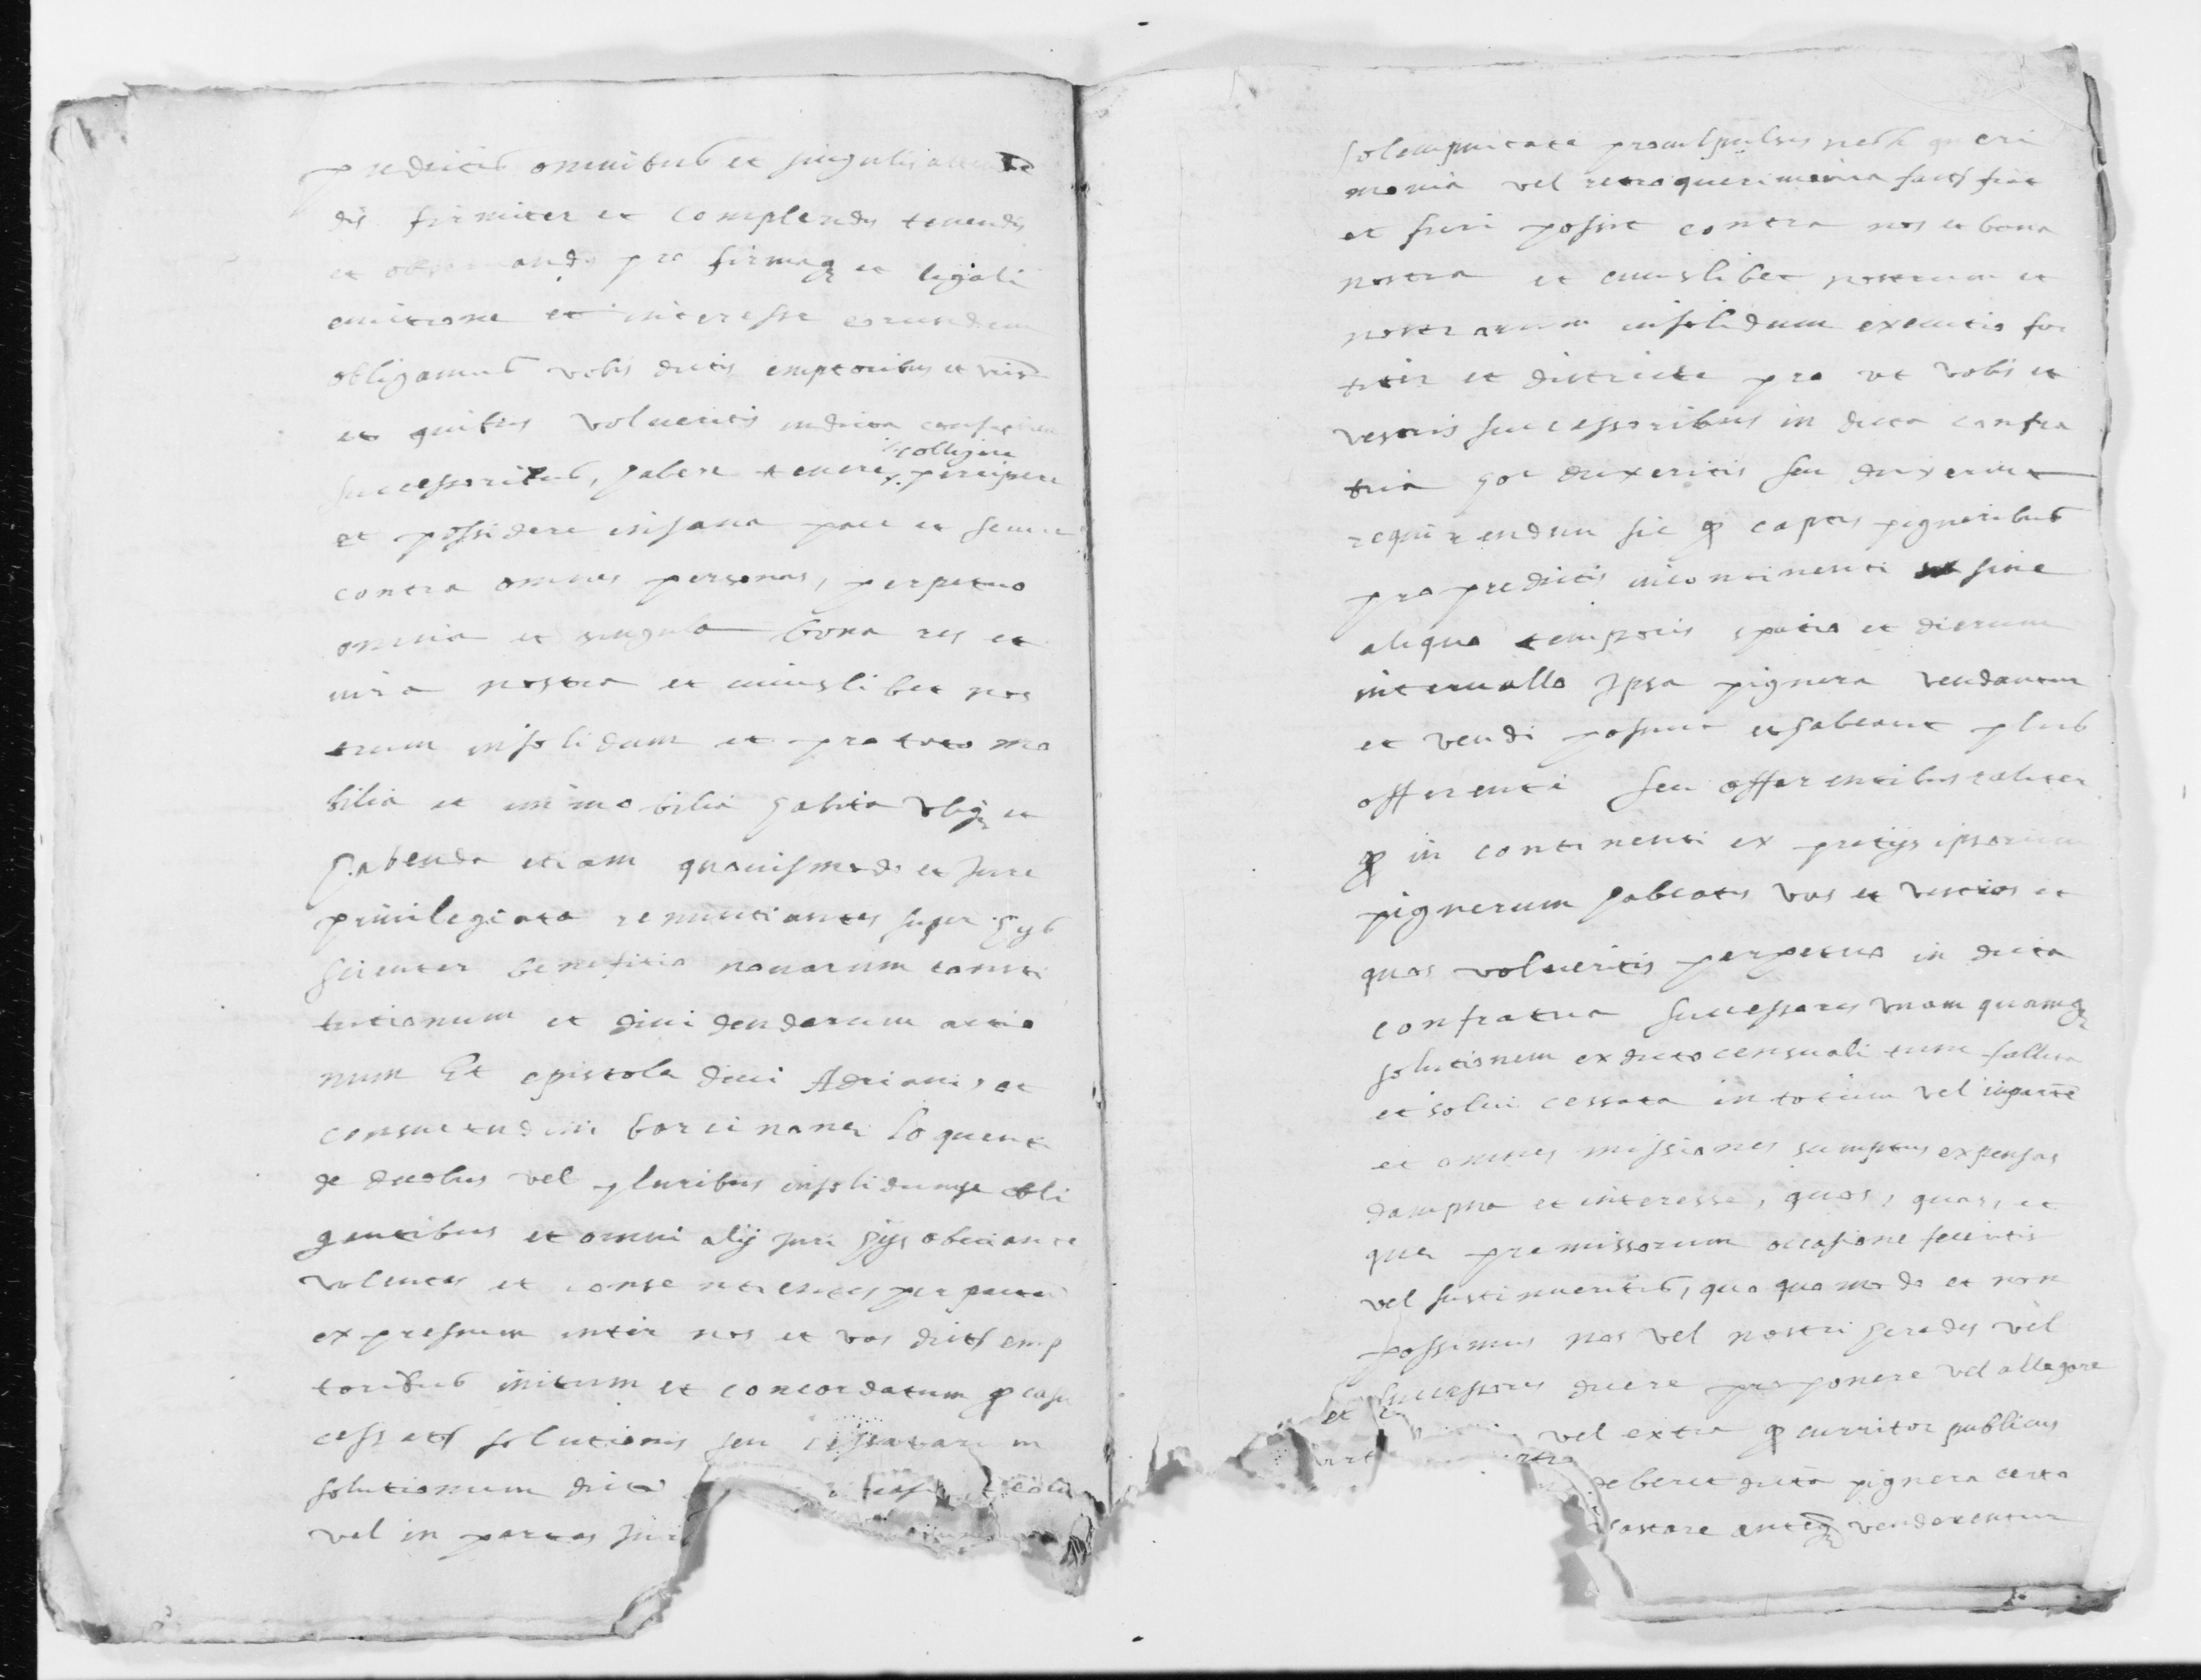 predictis omnibus et singulis atten
dis firmiter et complendis tenendis
et pro firmaq et legali
euictione et interesse eorundem
obligamus vobis dictis emptoribus et vris
et quibus volueritis in dicta
colligere
successoribus, habere tenere, percipere
et possidere in sana pace et secure
contra omnes personas, perpetuo
omnia et singula bona res et
iura nostra et cuiuslibet nos
trum insolidum et pro toto mo
bilia et immobilia habita vbiq et
habenda etiam quouismodo et Jure
priuilegiata renuntiantes super hys
scienter benefitio nouarum consti
tutionum et diuidendarum actio
num Et epistola diui Adriani, et
consuetudini barcinonen loquenti
de duobus vel pluribus insolidum se obli
gantibus et omni alij Juri hijs obuiante
volentes et consentientes per pactum
expressum inter nos et vos dictos emp
toribus initum et concordatum q casu
cessats solutionis seu cessatarum
solutionum dicta
vel in partes Juri
solempnitate procul pulsis
monia vel retroquerimonia fiat
et fieri possit contra nos et bona
nostra et cuiuslibet nostrum et
nostrorum insolidum executio for
titer et districte pro vt vobis et
vestris successoribus in dicta confra
tria hoc duxeritis seu duxerint
requirendum sic q captis pignoribus
pro predictis incontinenti sine
aliquo temporis spatio et dierum
interuallo Ipsa pignora vendantur
et vendi possint et habeant plus
offerenti seu offerentibus taliter
q in continenti ex pretijs ipsorum
pignorum habeatis vos et vestros et
quos volueritis perpetuo in dicta
confratria successores vnam quamq
solutionem ex dicto censuali tunc
et solui cessata in totum vel in parte
et omnes missiones sumptus expensas
dampna et interesse, quos, quas, et
que premissorum occasione feceritis
vel sustinueritis, quo quo modo et non
possimus nos vel nostri heredes vel
successores dicere proponere vel allegare
et vel extra q curritor publicus
deberet dicta pignora certo
castare anteq venderentur